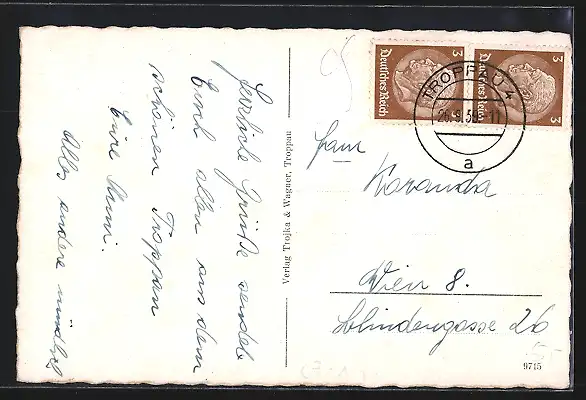 Herzliche Grüße sendet
Euch allen aus dem
schönen Troppau
Eure Mimi.
Alles andere mündlich
Verlag Trojka & Wagner, Troppau
3
Deutsches Reich
3
3
Deutsches Reich
TROPPAU 4
a
Fam.
Koranda
Wien 8.
Blindengasse 26
9715